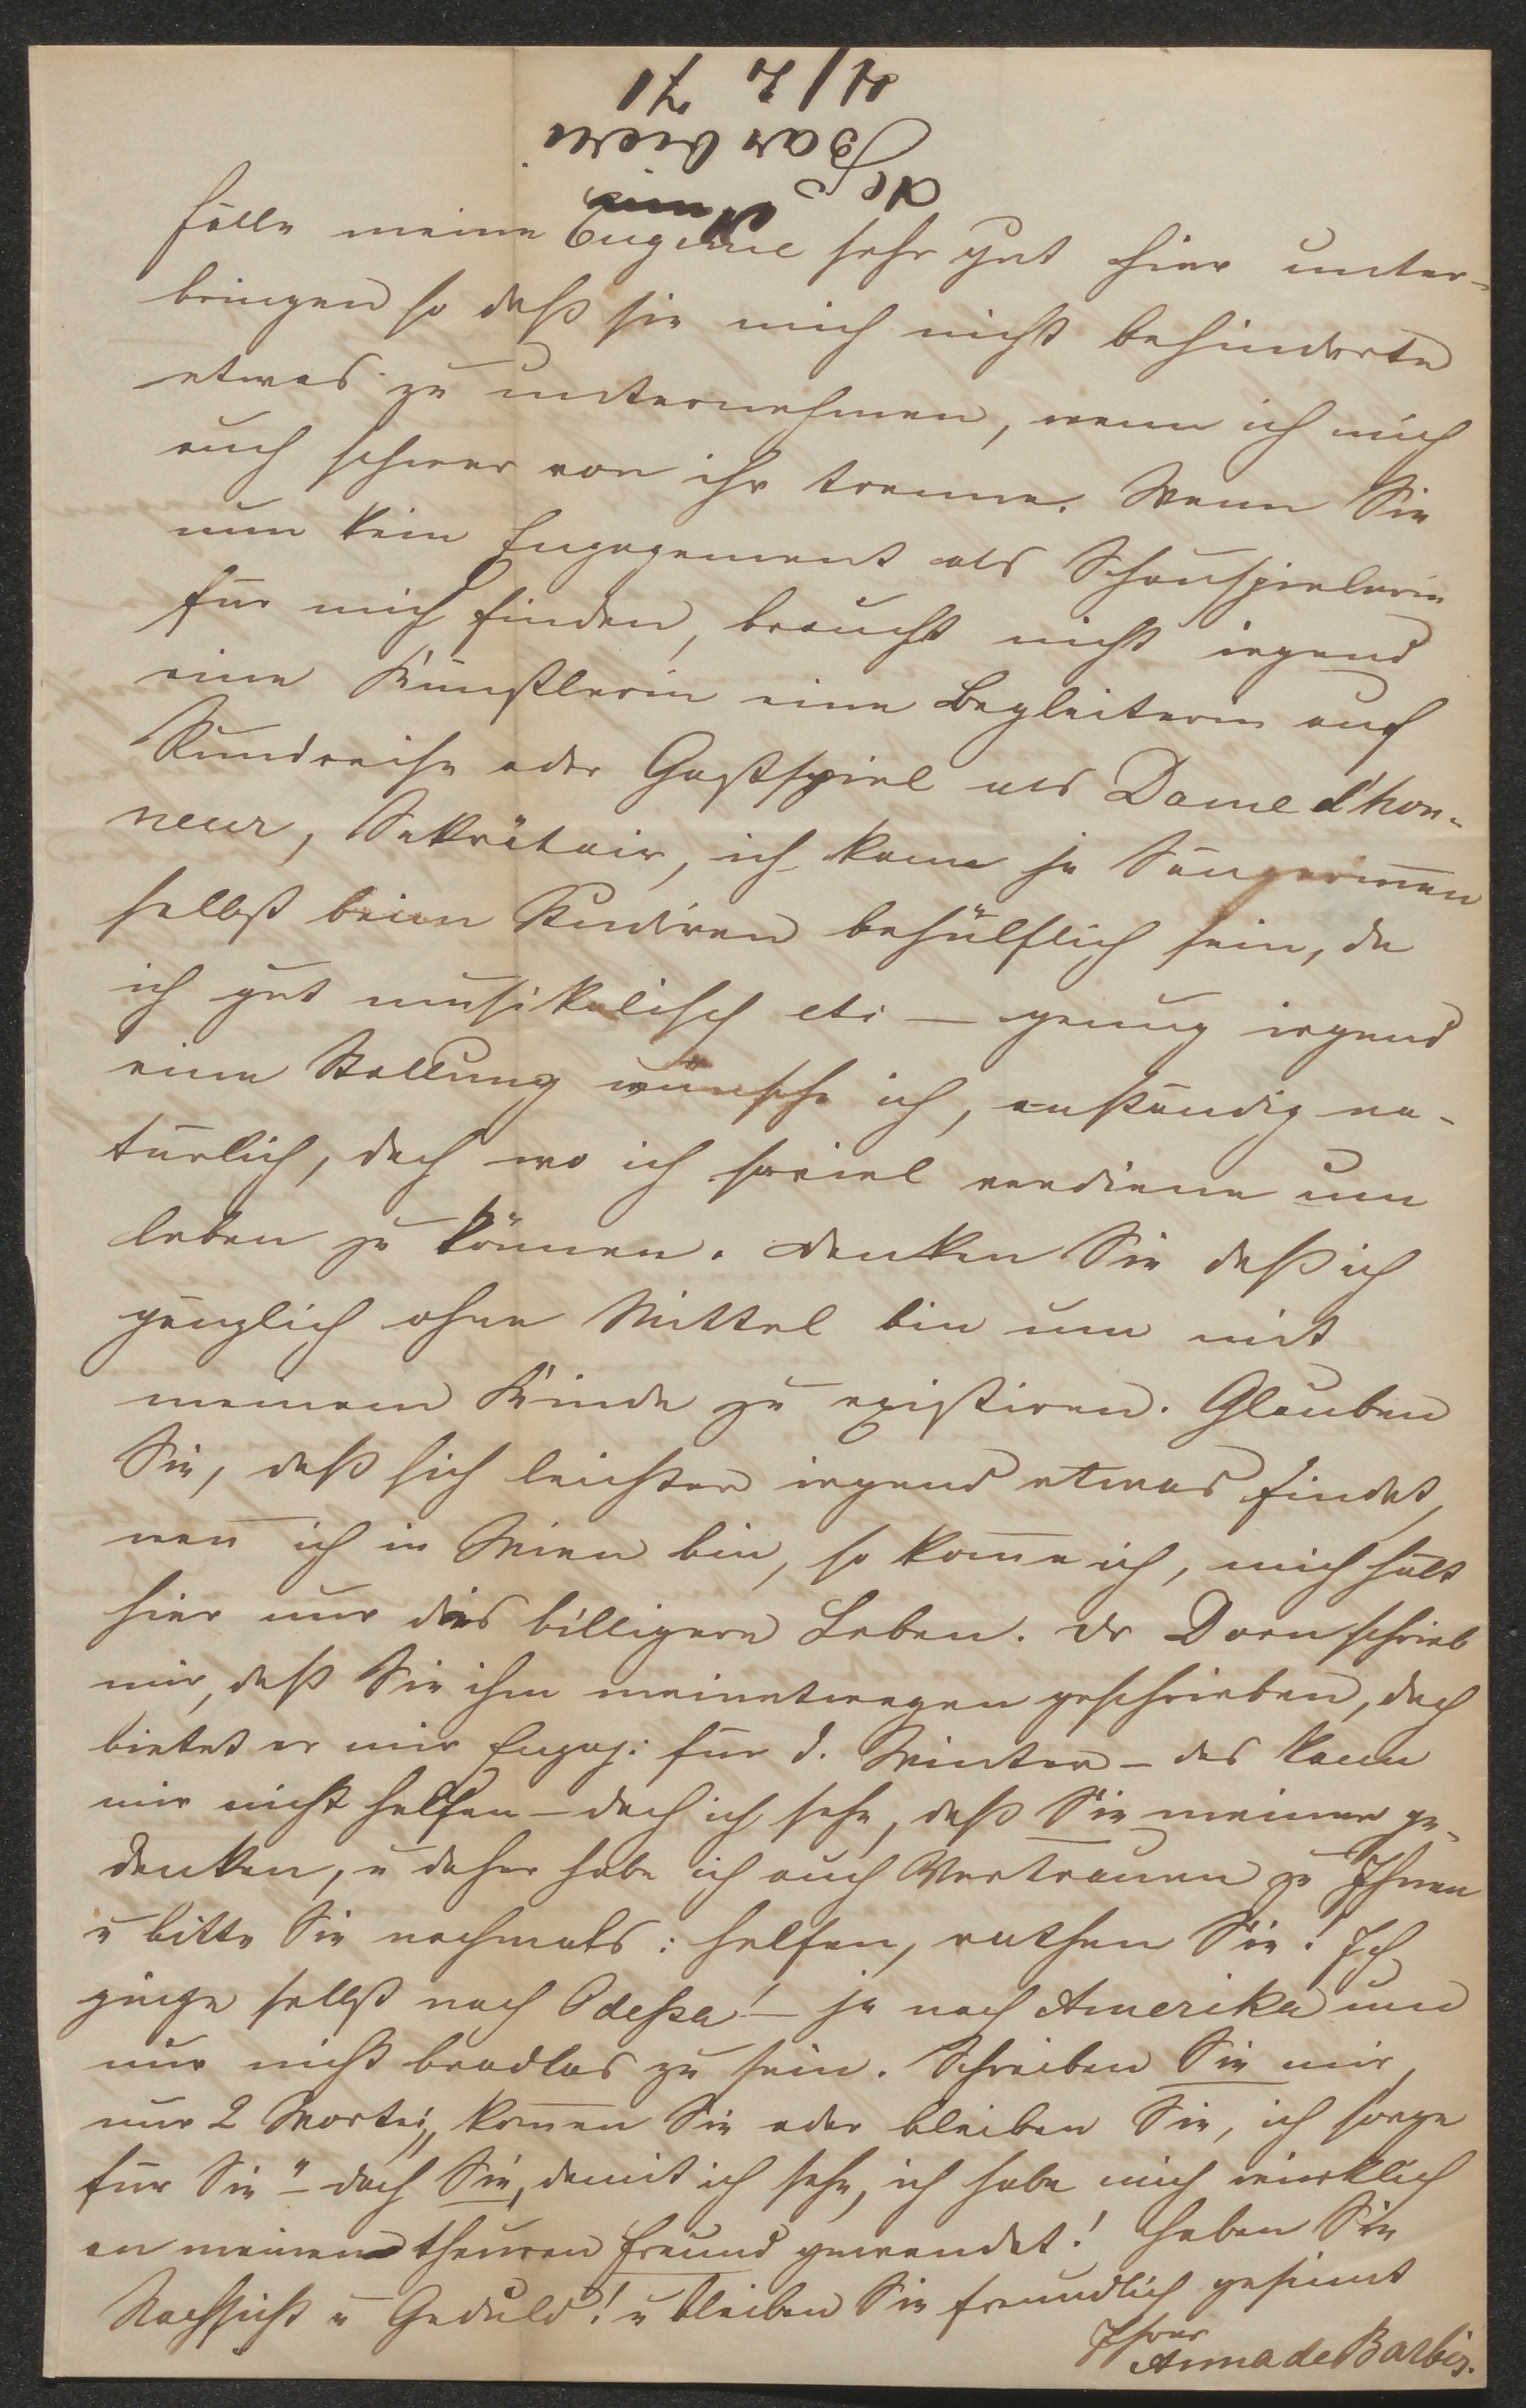 4/2 71
Barbieri
de
Falle meine Eugenie sehr gut hier unter-
bringen so daß sie mich nicht behinderte
etwas zu unternehmen, wenn ich mich
auch schwer von ihr trenne. Wenn Sie
nun kein Engagement als Schauspielerin
für mich finden, braucht nicht irgend
eine Künstlerin eine Begleiterin auf
Rundreise oder Gastspiel als Dame d'hon-
neur, Sekretair, ich kann ja Sängerinnen
selbst beim Studiren behülflich sein, da
ich gut musikalisch etc – genug irgend
eine Stellung wünsche ich, anständig na-
türlich, doch wo ich soviel verdiene um
leben zu können. Denken Sie daß ich
gänzlich ohne Mittel bin um mit
meinem Kinde zu existiren. Glauben
Sie, daß sich leichter irgend etwas findet,
wen̄ ich in Wien bin, so kom̄e ich, mich hält
hier nur das billigere Leben. Dr Dorn schrieb
mir, daß Sie ihm meinetwegen geschrieben, doch
bietet er mir Engag: für d. Winter – das kann
mir nicht helfen – doch ich sehe, daß Sie meiner ge-
denken, u daher habe ich auch Vertrauen zu Ihnen
u bitte Sie nochmals: helfen, rathen Sie! Ich
ginge selbst nach Odessa! – ja nach Amerika um
nur nicht brodlos zu sein. Schreiben Sie mir,
nur 2 Worte: „kom̄en Sie oder bleiben Sie, ich sorge
für Sie" – doch Sie, damit ich sehe, ich habe mich wirklich
an meinen theuren Freund gewendet! Haben Sie
Nachsicht u Geduld! u bleiben Sie freundlich gesinnt
Ihrer
Anna de Barbier.